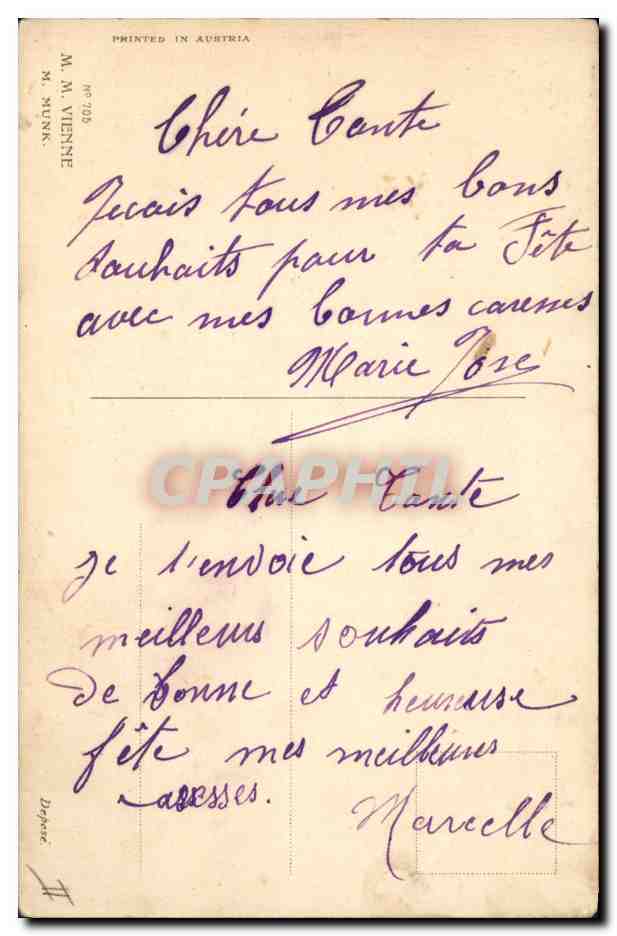 PRINTED IN AUSTRIA
Nº 705
M. M. VIENNE
M. MUNK.
Chére Tante
Reçois tous mes bons
souhaits pour ta Fête
avec mes bonnes caresses
Marie Jose
CPAPHIL
Chere Tante
je t'envoie tous mes
meilleurs souhaits
de bonne et heureuse
fête mes meilleures
caresses.
Marcelle
Deposé